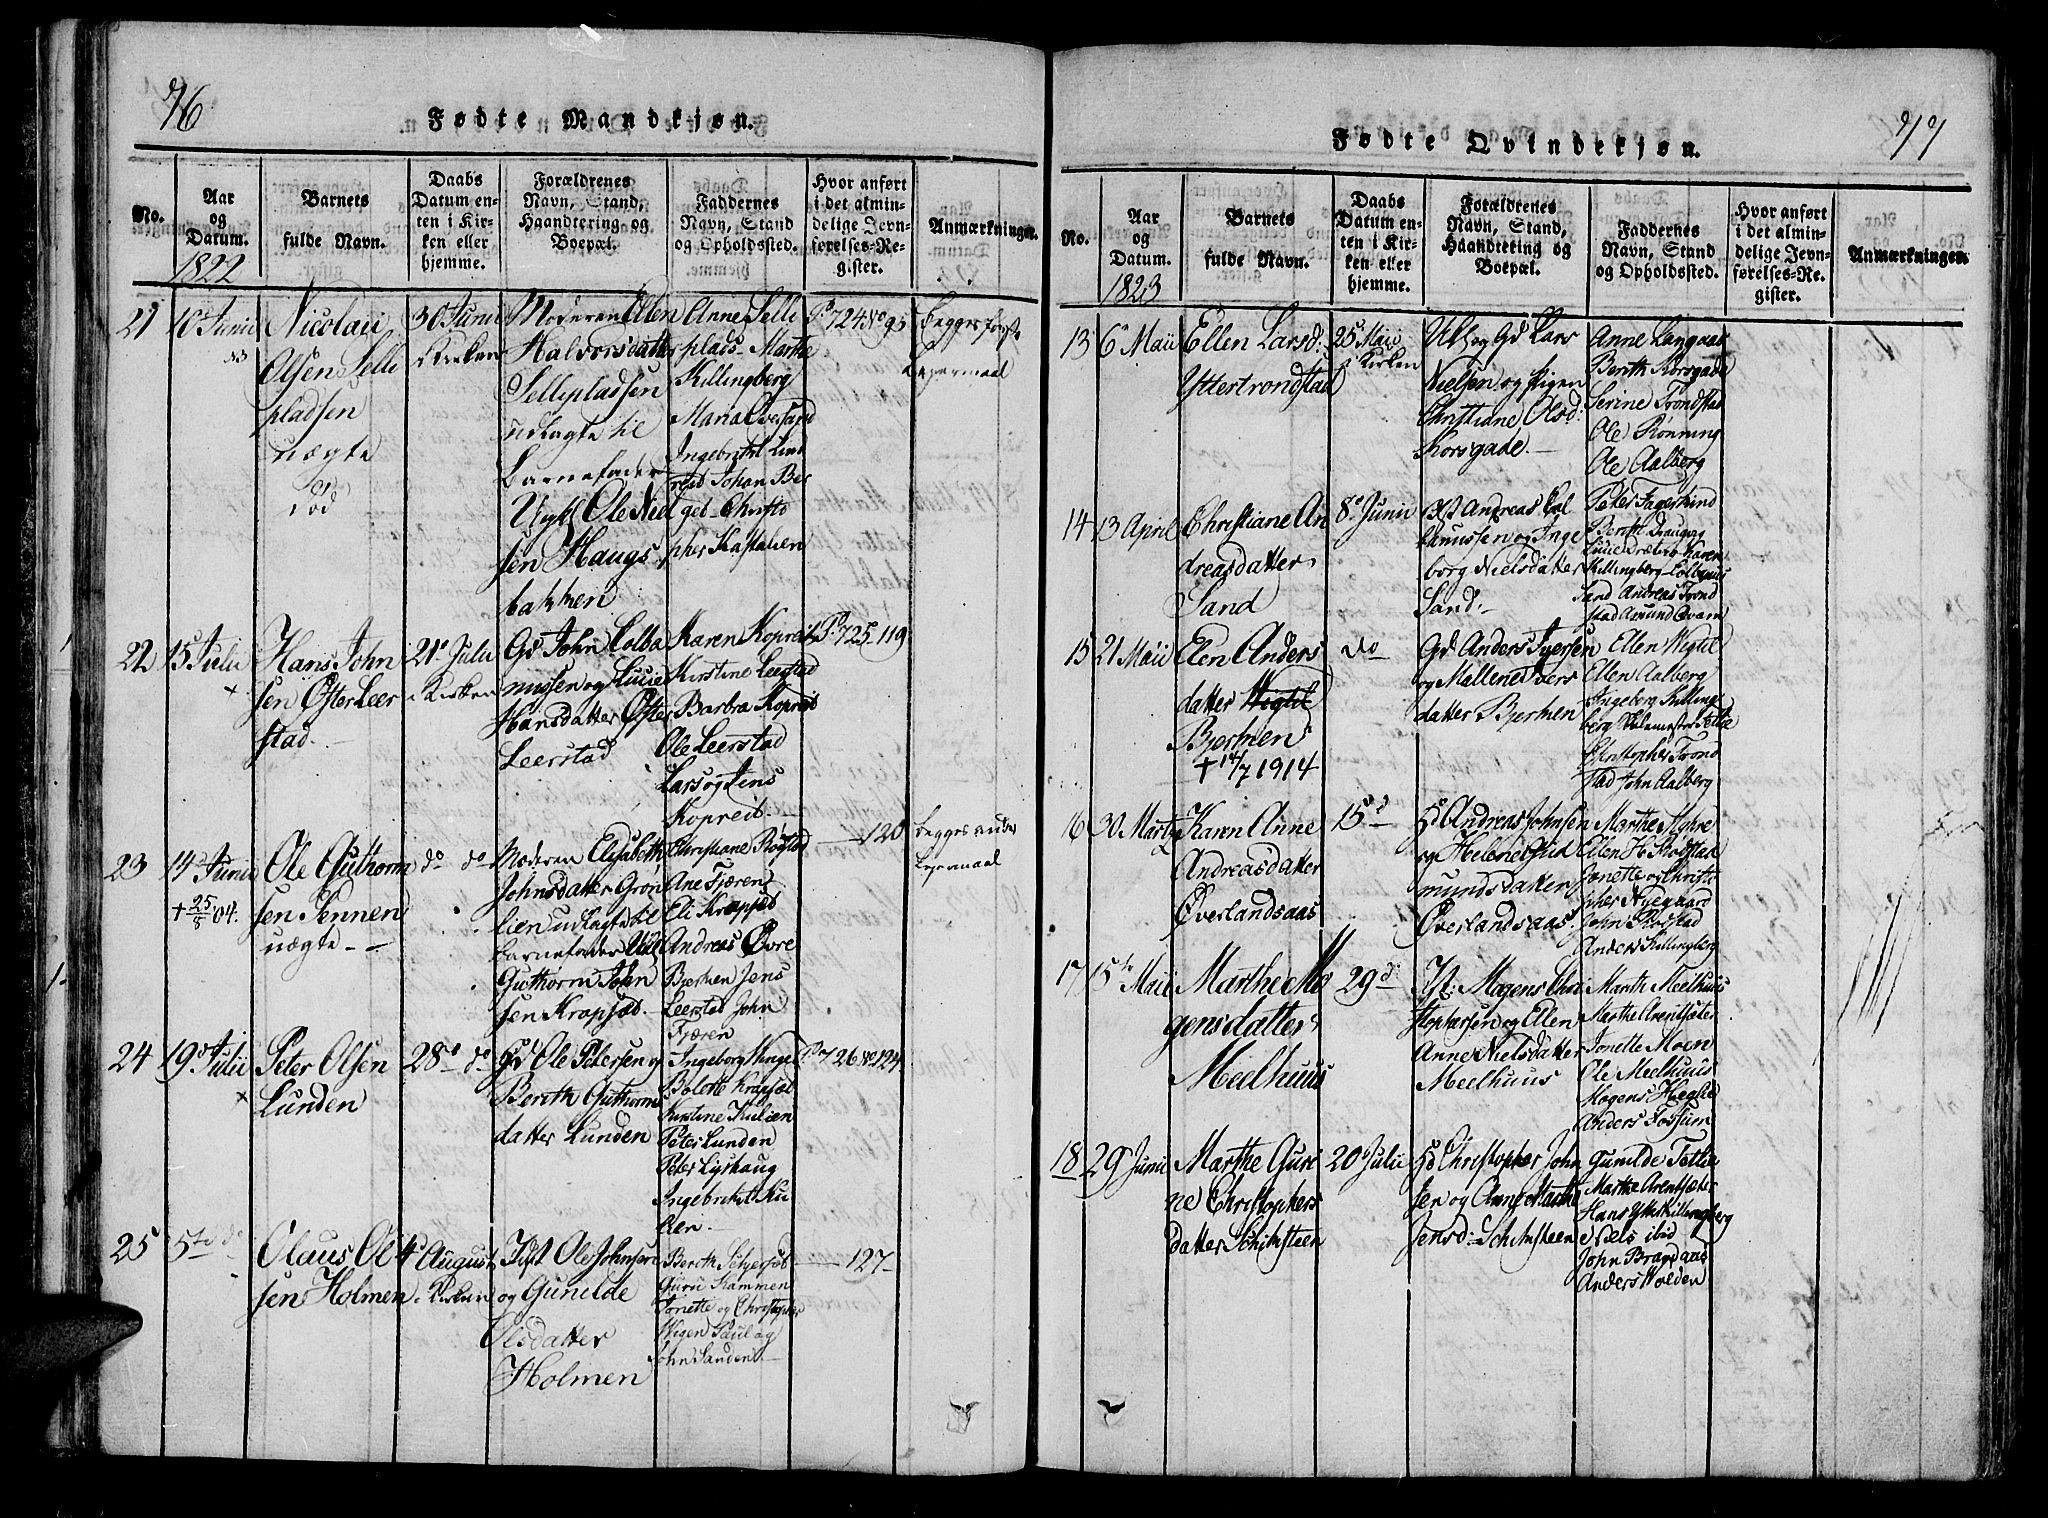 76
Fødte Mandkjøn.
No.
Aar
og
Datum.
1822
Barnets
fulde Navn.
Daabs
Datum en-
ten i Kir-
ken eller
hjemme.
Forældrenes
Navn, Stand,
Haandtering og
Boepæl.
Faddernes
Navn, Stand
og Opholdssted.
Hvor anført
i det almin-
delige Jevn-
førelses-Re-
gister.
Anmærkninger.
21
10 Junii
Nicolaii
Olsen Selli
pladsen
uægte
Død
30 Junii
i Kirken
Moderen Ellen
Halvorsdatter
Sellipladsen
udlagte til
Barnefader
Ole Niel
sen Haugs
bakken
Anne Selli
plads Marthe
Killingberg
Maria Overland
Ingebrigt
Johan Ber
get Christo
pher Kastalien
P 724 No 95
Begges første
Leiermaal
22
15 Julii
Hans John
sen Øster Leer
stad.
21 Julii
i Kirken
Gd John Colba
nussen og Lucie
Hansdatter Øster
Leerstad
Karen Kopreit
Kirstine Leerstad
Barbra Kopreit
Ole Leerstad
Lars og Jens
Kopreit
P 725. 119
23
14 Junii
+ 25/5 04.
Ole Guthorm
sen Jennen
uægte
do do
Moderen Elisabeth
Johnsdatter Grøn
lien udlagte til
Barnefader
Guthorm John
sen Krapsæd.
Christiane Rostad
Ane Fjæren
Eli Krapsæd
Andreas Øvre
Bjerken Jens
Leerstad John
Fjæren
120
Begges andet
Leiermaal
24
19 Julii
Peter Olsen
Lunden
28 do
Gd Ole Petersen og
Berith Guthorm
datter Lunden
Ingeborg
Bolette Krapsæd
Kirstine Kulien
Peter Lunden
Peter Lyshaug
Ingebrikt Ku
lien.
P 726 No 124
25
5te do
Claus Ol
sen Holmen
4 August
i Kirken
Ole Johnsen
og Gunilde
Olsdatter
Holmen
Berith
Guru Stammen
Jonette og Christopher
Wigen Paul og
John Sanden
127
77
Fødte Qvindekjøn.
No.
Aar
og
Datum.
1823
Barnets
fulde Navn.
Daabs
Datum en-
ten i Kir-
ken eller
hjemme.
Forældrenes
Navn, Stand,
Haandtering og
Boepæl.
Faddernes
Navn, Stand
og Opholdssted.
Hvor anført
i det almin-
delige Jevn-
førelses-Re-
gister.
Anmærkninger.
13
6 Maii
Ellen Larsd:
Yttertrondstad
25 Maii
i Kirken
og Gd Lars
Nielsen og Pigen
Christiane Olsd:
Korsgade.
Anne Langaas
Berith Korsgade
Serine Trondstad
Ole Rønning
Ole Aalberg
14
13 April
Christiane An
dreasdatter
Sand
8 Junii
Andreas Col
banussen og Inge
borg Nielsdatter
Sand
Peter Fagerstrand
Berith Draugag
Killingberg Colbanus
Sand Andreas Trond
stad Amund Qvam
15
21 Maii
Elen Anders
datter Wigtil
Bjerken
+ 14/7 1914
do
Gd Anders Iversen
og Mallene Ivers
datter Bjerken
Ellen Wigtil
Ellen Aalberg
Ingeborg Killing
berg
Christopher Trond
stad John Aalberg
16
30 Martz
Karen Anne
Andreasdatter
Øverlandsaas
15 d
Andreas Johnsen
og Helene Gud
mundsdatter
Øverlandsaas.
Marthe Myhre
Ellen Hs Rostad
Jonette og Christo
pher Nyegaard
John Rostad
Anders Killingberg
17
15 Maii
Marthe Mo
gensdatter
Meelhuus
29 d
Mogens Chri
stophersen og Ellen
Anne Nielsdatter
Meelhuus
Marith Meelhuus
Marthe Arentsæter
Jonette Moen
Ole Meelhuus
Mogens Heglie
Anders Fossum
18
29 Junii
Marthe Guri
ne Christophers
datter Schihsteen
20 Julii
Christopher John
sen og Anne Marthe
Jensd: Schihsteen
Gunilde Tetlie
Marthe Arentsæter
Hans Yttkillingberg
Niels ibid
John Bragdaas
Anders Wolden